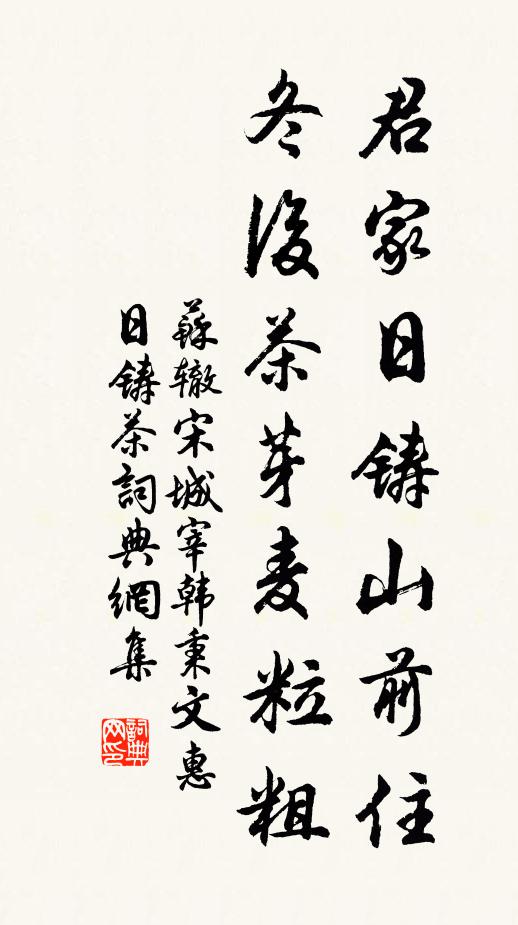 君家日铸山前住
冬後茶芽麦粒粗
蘇辙宋城宰韩秉文惠
日铸茶詞典網集
詞典
网印